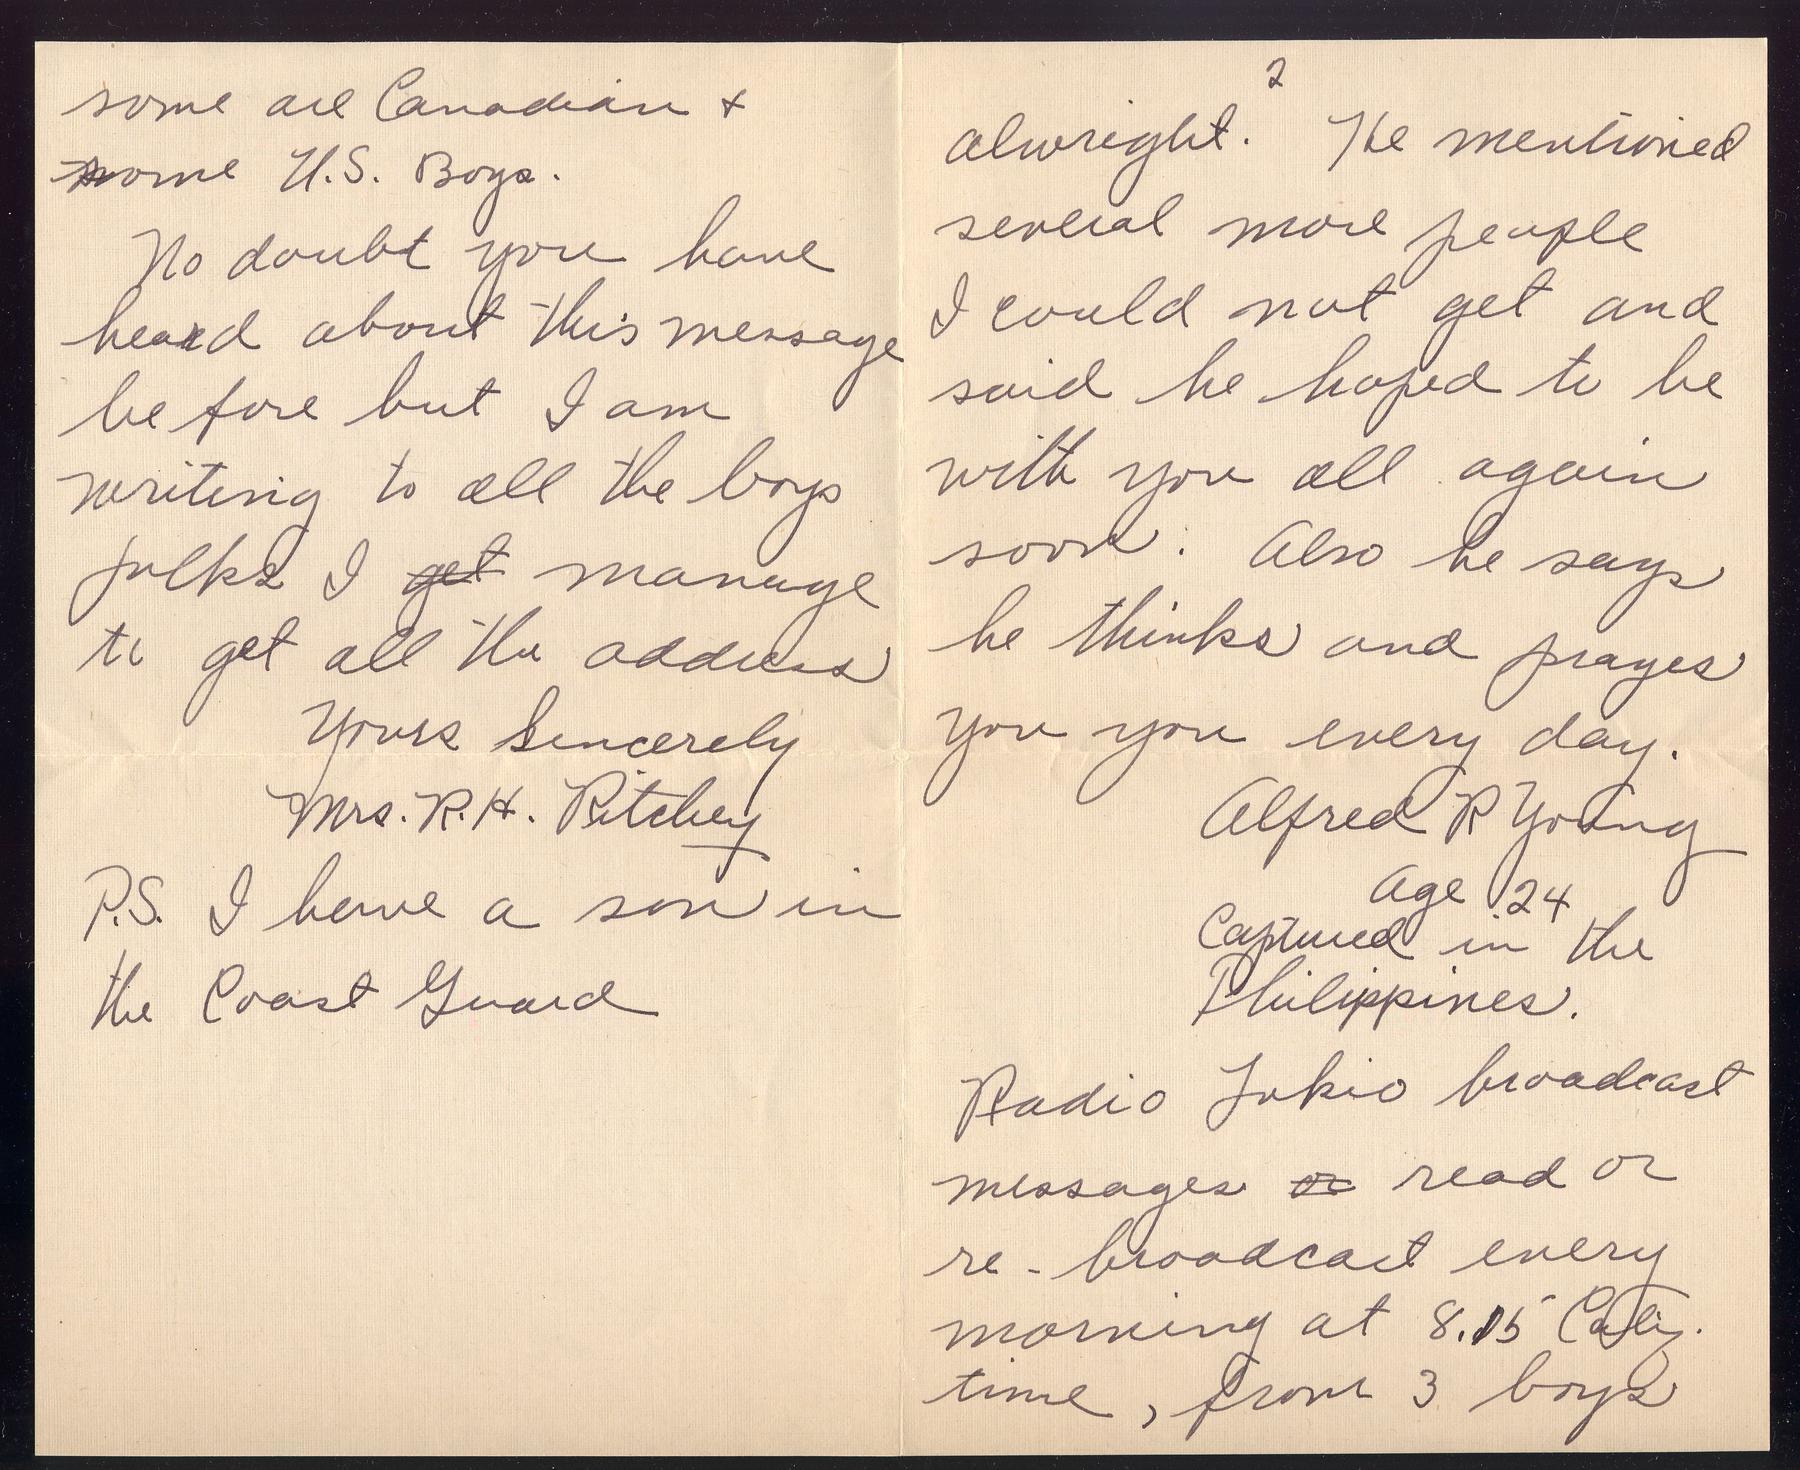 2
alwright. He mentioned
several more people
I could not get and
said he hoped to be
with you all again
soon. Also he says
he thinks and prayes
you you every day.
Alfred R Young
age 24
Captured in the
Philippines.
Radio Tokio broadcast
messages or read or
re-broadcast every
morning at 8.15 Calif.
time, from 3 boys
some are Canadian +
some U.S. Boys.
No doubt you have
heard about this message
before but I am
writing to all the boys
folks I get manage
to get all the address
Yours Sincerely
Mrs. R.H. Ritchey
P.S. I have a son in
the Coast Guard